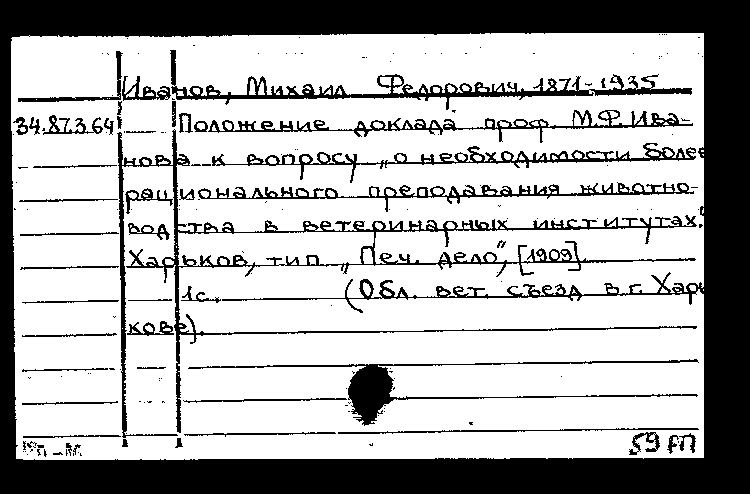 Иванов, Михаил Федорович, 1871-1935
34.87.3.64 Положение доклада проф. М.Ф. Ива-
нова к вопросу „о необходимости более
рационального преподавания животно-
водства в ветеринарных институтах."
Харьков, тип „Печ. дело", [1909]
1с. (Обл. вет. съезд в г. Харь
кове).
59 РП